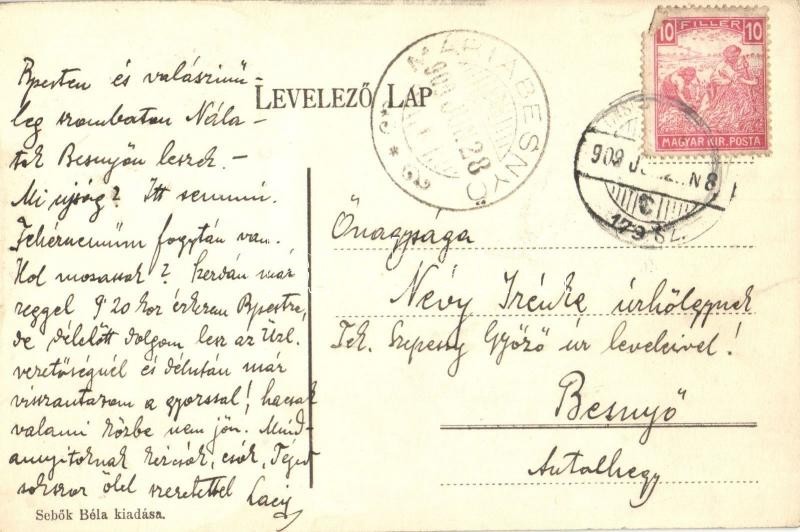 LEVELEZŐ LAP
10 FILLER 10
MAGYAR KIR. POSTA
MÁRIABESNYŐ
909
28
909
N8
C
179 SZ.
Bpesten és valószinü-
leg szombaton Nála-
tok Besnyőn leszek. -
Mi ujság? Itt semmi.
Fehérnemüm fogytán van.
Hol mosassak? Szerdán már
reggel 9 20 kor érkezem Bpestre,
de délelőtt dolgom lesz az Üzl.
vezetőségnél és délután már
visszautazom a gyorssal, hacsak
valami közbe nem jön. Mind-
annyitoknak kézcsók, csók, Téged
sokszor ölel szeretettel Laci
Önagysága
Névy Irénke úrhölgynek
Tek. Szepessy Győző úr leveleivel!
Besnyő
Antalhegy
Sebők Béla kiadása.